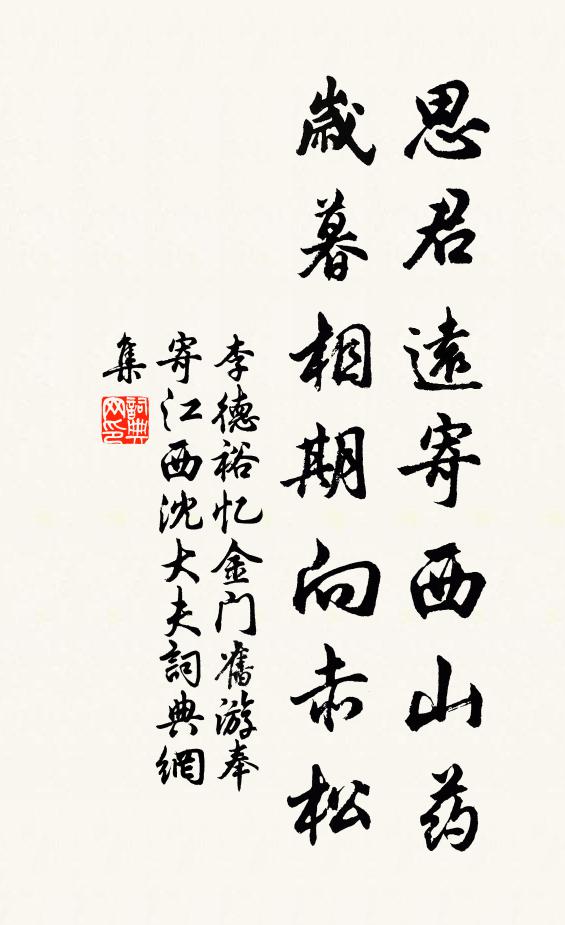 思君遠寄西山药
歲暮相期向赤松
李德裕忆金门舊游奉
寄江西沈大夫詞典網
集
詞典网印